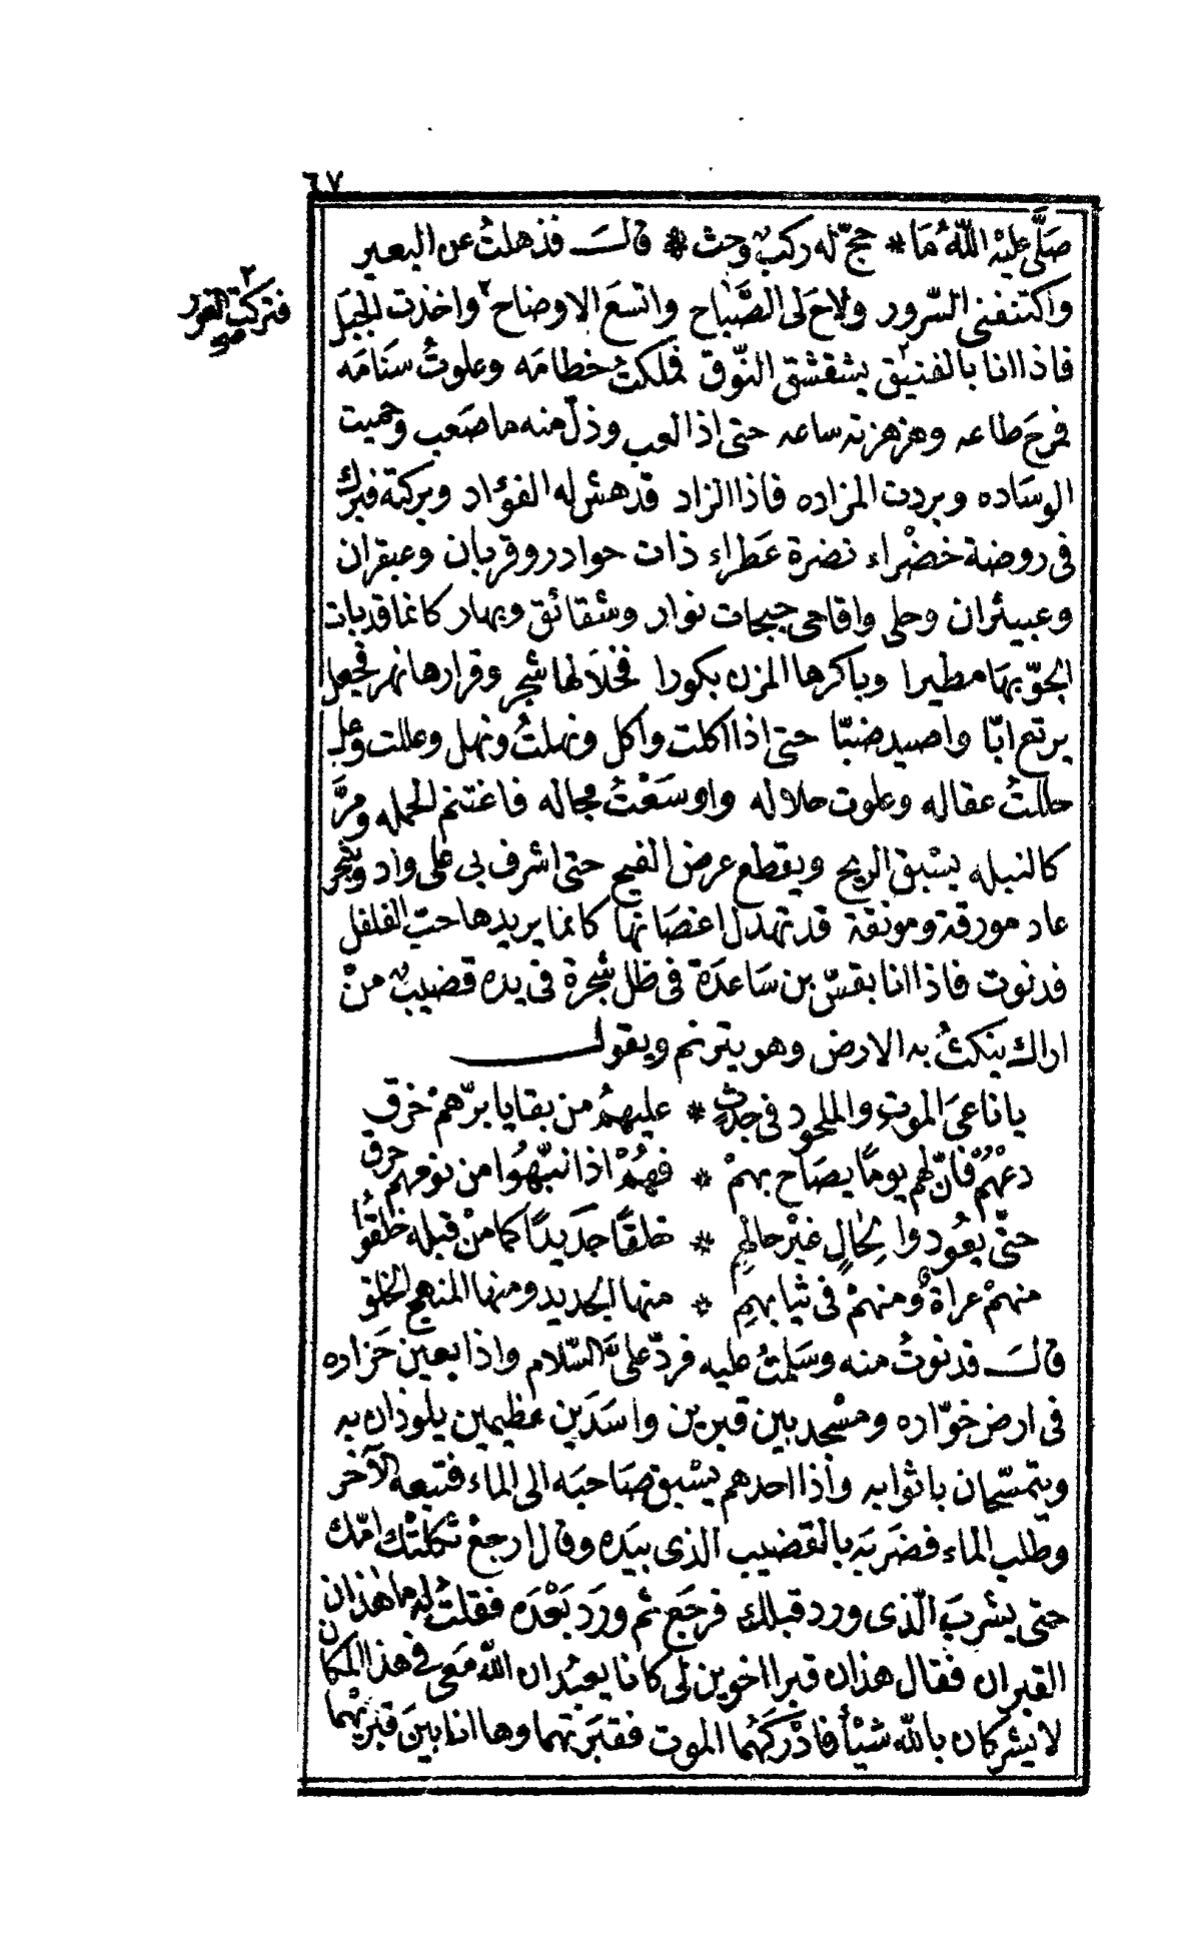 ٦٧
صَلَّى عليْه اللّهُ مَا * حجّ له ركبٌ وحث * قالـــ فذهلتُ عن البعير
واكتنفنى السّرور ولاح لى الصَّبَاح واتسعَ الاوضاح ٢ واخذت الجبَل
٢
فتركت القور
فاذا انا بالفنيٓق يشقشق النّوق فملكتُ خطامَه وعلوتُ سَنَامَه
فمرحَ طاعه وهزهزته ساعه حتى اذا لعب وذلّ منه ما صَعب وحميت
الوسَاده وبردت المزاده فاذا الزاد قد هش له الفؤاد وبركته فبرك
فى روضة خضْراء نضرة عَطراء ذات حوادر وقربان وعبقران
وعبيثران وحلى واقاحى جبجات نوار وشقائق وبهار كانما قد بات
الجوّ بهَا مطيرا وباكرها المزن بكورا فخلَالها شجر وقرارها نهر فجعل
يرتع ابّا واصيد ضبّا حتى اذا اكلت واكل ونهلتُ ونهل وعللت وعل
حللتُ عقاله وعلوت جلاله واوسَعْتُ مجاله فاغتنم الحمله ومرَّ
كالنبله يسْبق الريح ويقطع عرض الفيح حتى اشرف بى على واد وشجر
عاد مورقة ومونقة قد تهدل اغصَانها كانما بريدها حبّ الفلفل
فدنوت فاذا انا بقسّ بن سَاعدَة فى ظل شجرة فى يده قضيبٌ منْ
اراك ينكتُ به الارض وهو يترنم ويقولـــ
يا ناعىَ الموتِ والملحود فى جدثٍ * عليهمُ من بقايا بزّهمْ خرق
دعْهُمْ فانّ لهم يومًا يصَاح بهمْ * فهُمْ اذا نبّهُوا من نومهم حرق
حتّى يعُودوا بحالٍ غيْر حالهِمِ * خلقًا جَديدًا كما منْ قبله خلقوُا
منهمْ عراةٌ ومنهمْ فى ثيابهِمِ * منها الجديد ومنها المنهج الخلق
قالـــ فدنوتُ منه وسَلمتُ عليه فردّ علىَّ السّلام واذا بعين خَرّاره
فى ارض خوّاره ومسْجد بين قبرين واسَدَين عظيمين يلوذان به
ويتمسّحان باثوابه واذا احدهم يسْبق صَاحبَه الى الماء فتبعه الآخر
وطلب الماء فضَربَه بالقضيب الذى بيَده وقال ارجعْ ثكلتْك امّك
حتى يشربَ الّذى ورد قبلك فرجَع ثم ورَد بَعْدَه فقلتُ له ما هٰذان
القبران فقال هذان قبرا اخوين لى كانا يعبُدان اللّه مَعى فى هذا المكان
لا يشركان باللّه شيْأً فادْركَهُما الموت فقبَرتهما وها انا بينَ قبرَيْهما